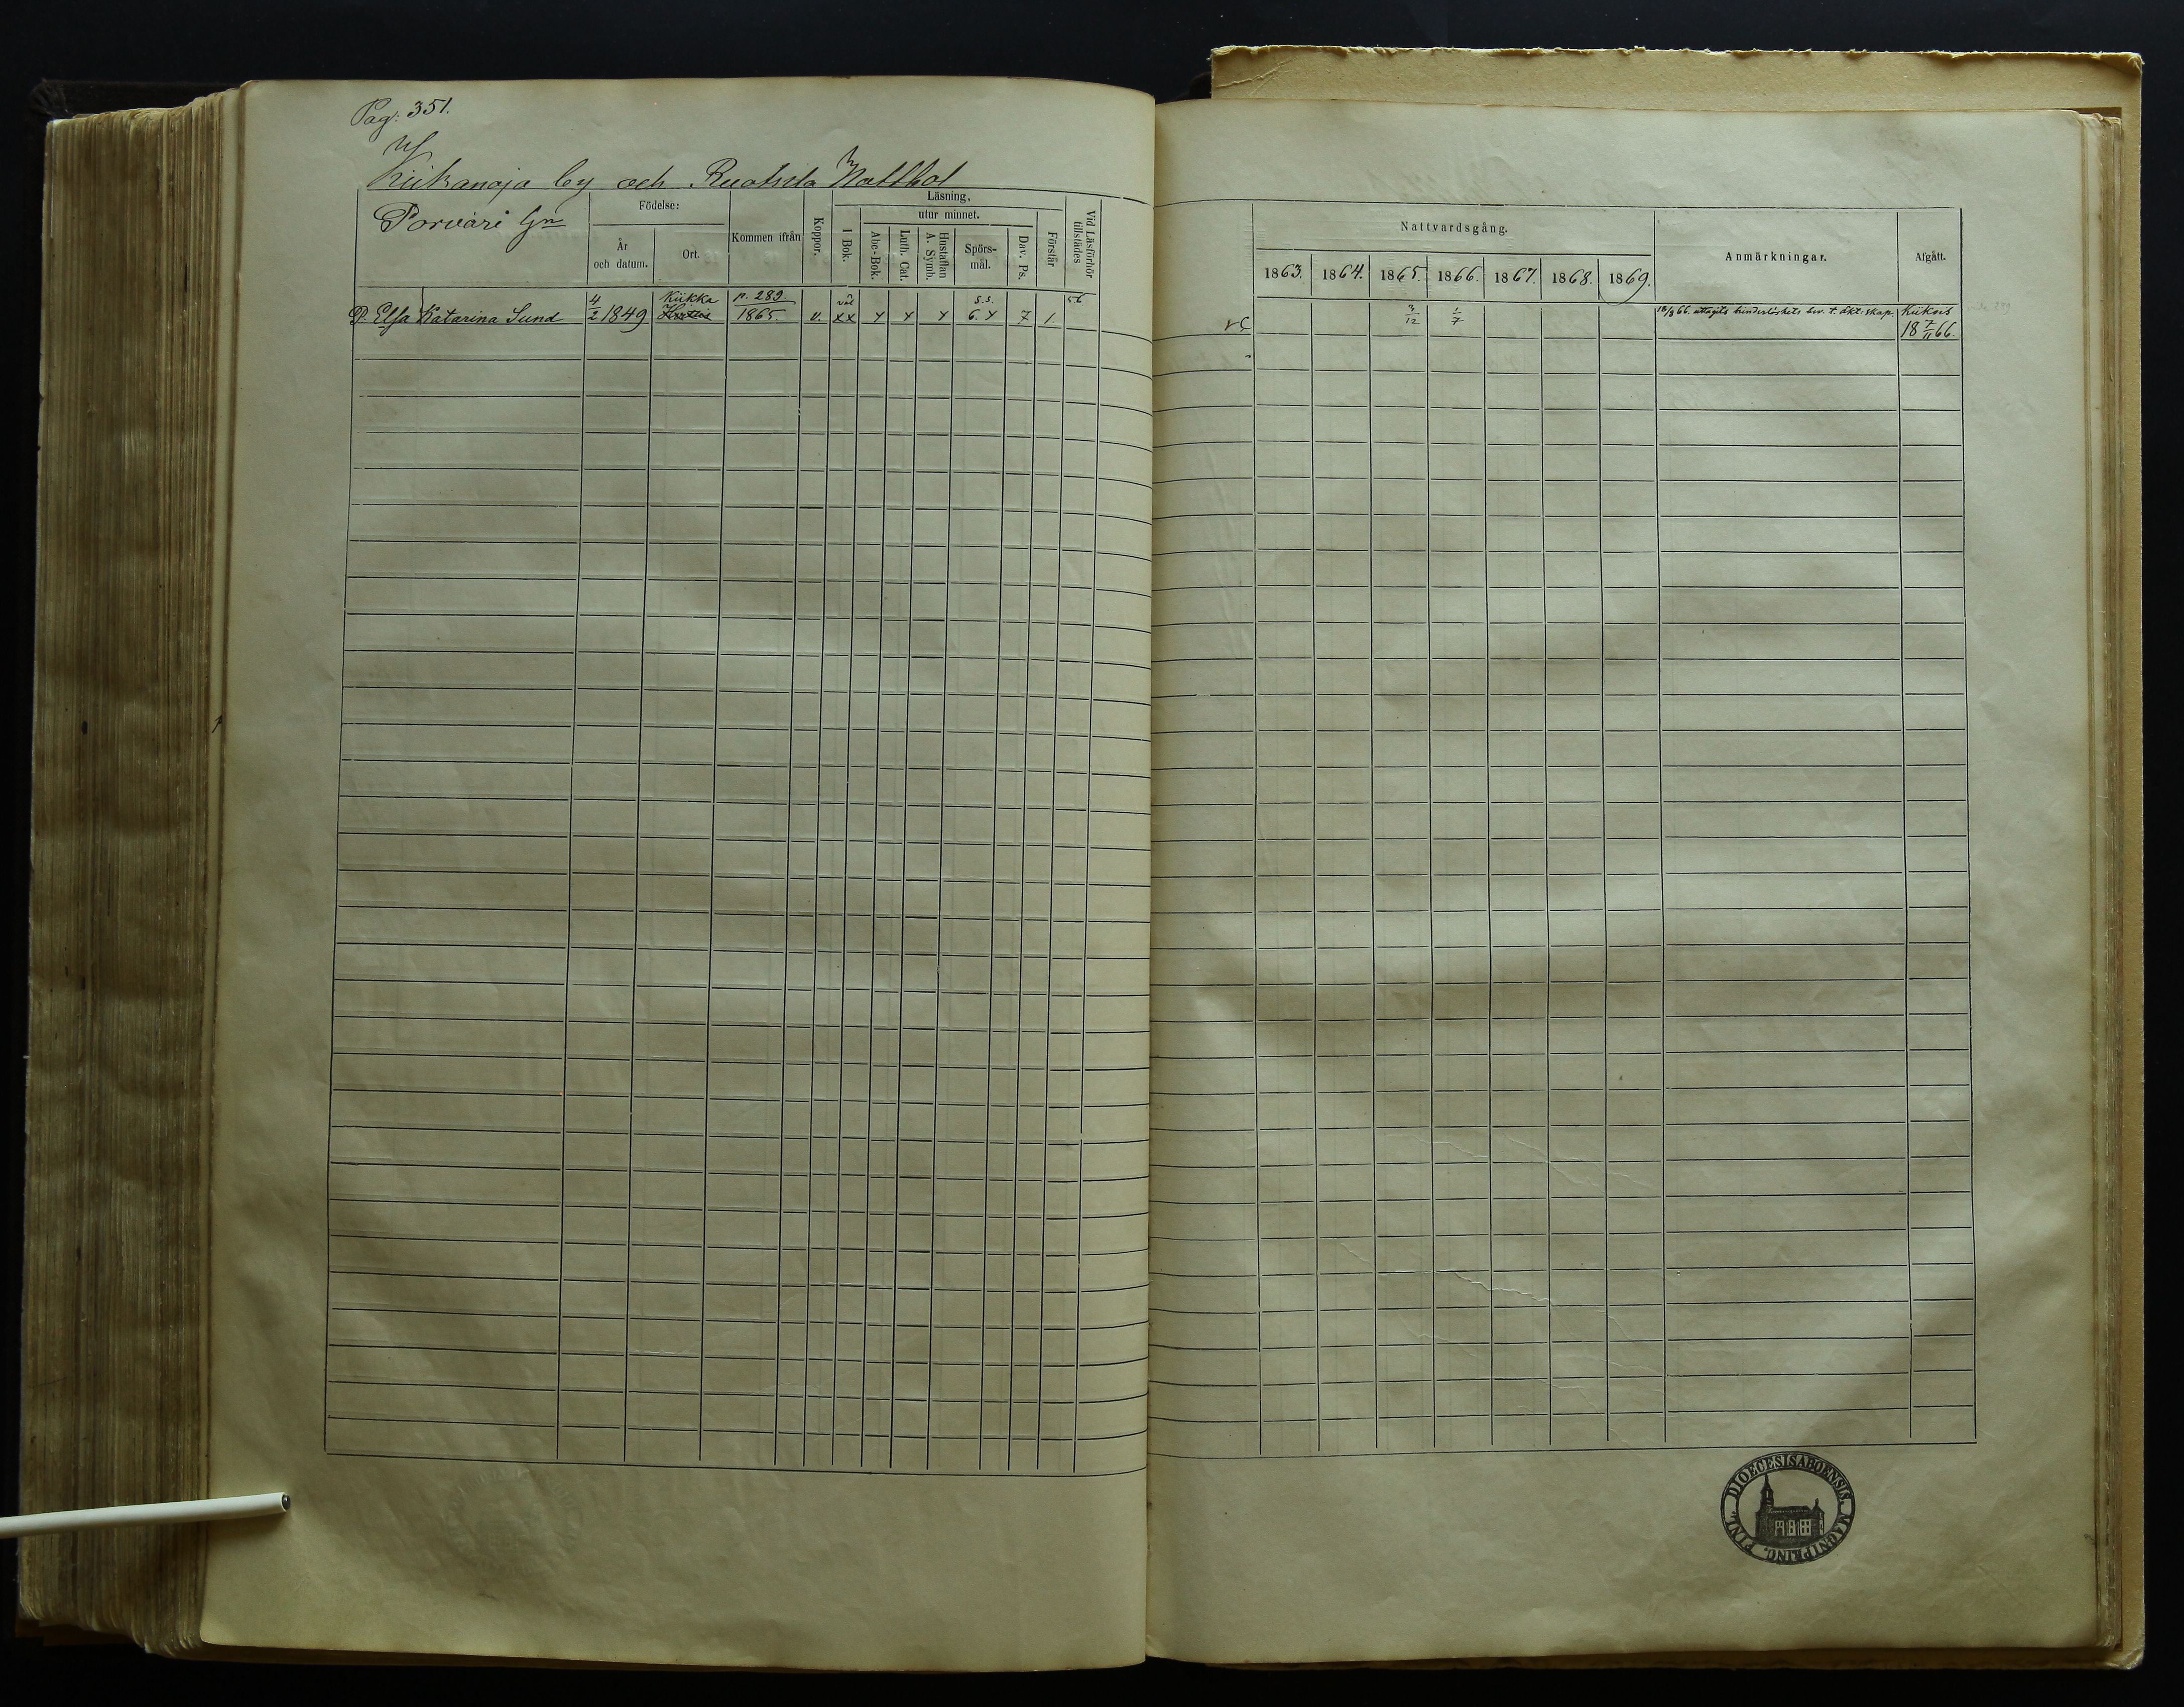 Pag: 351.
Kiikanoja by och Ruotsila Nattbol
Porvari Gn
Födelse:
År och datum.
Ort.
Kommen ifrån
Koppor.
Läsning,
utur minnet.
I Bok.
Abc-Bok.
Luth. Cat.
Hustaflan A. Symb.
Spörs-mål.
Dav. Ps.
Förstår
Vid Läsförhör tillstädes
Nattvardsgång.
1863. 1864. 1865. 1866. 1867. 1868. 1869.
Anmärkningar.
Afgått.
P. Elsa Katarina Lund
4/2 1849
Kiikka
p. 289
1865.
v.
väl
xx
s.s.
6.
7
1.
56
3/12
1/7
18/8 66. uttagits hinderlöshets bev. t. äkt:skap.
18 7/11 66.
DIOECESIS ABOENSIS. MAGNI PRINC. FINL.